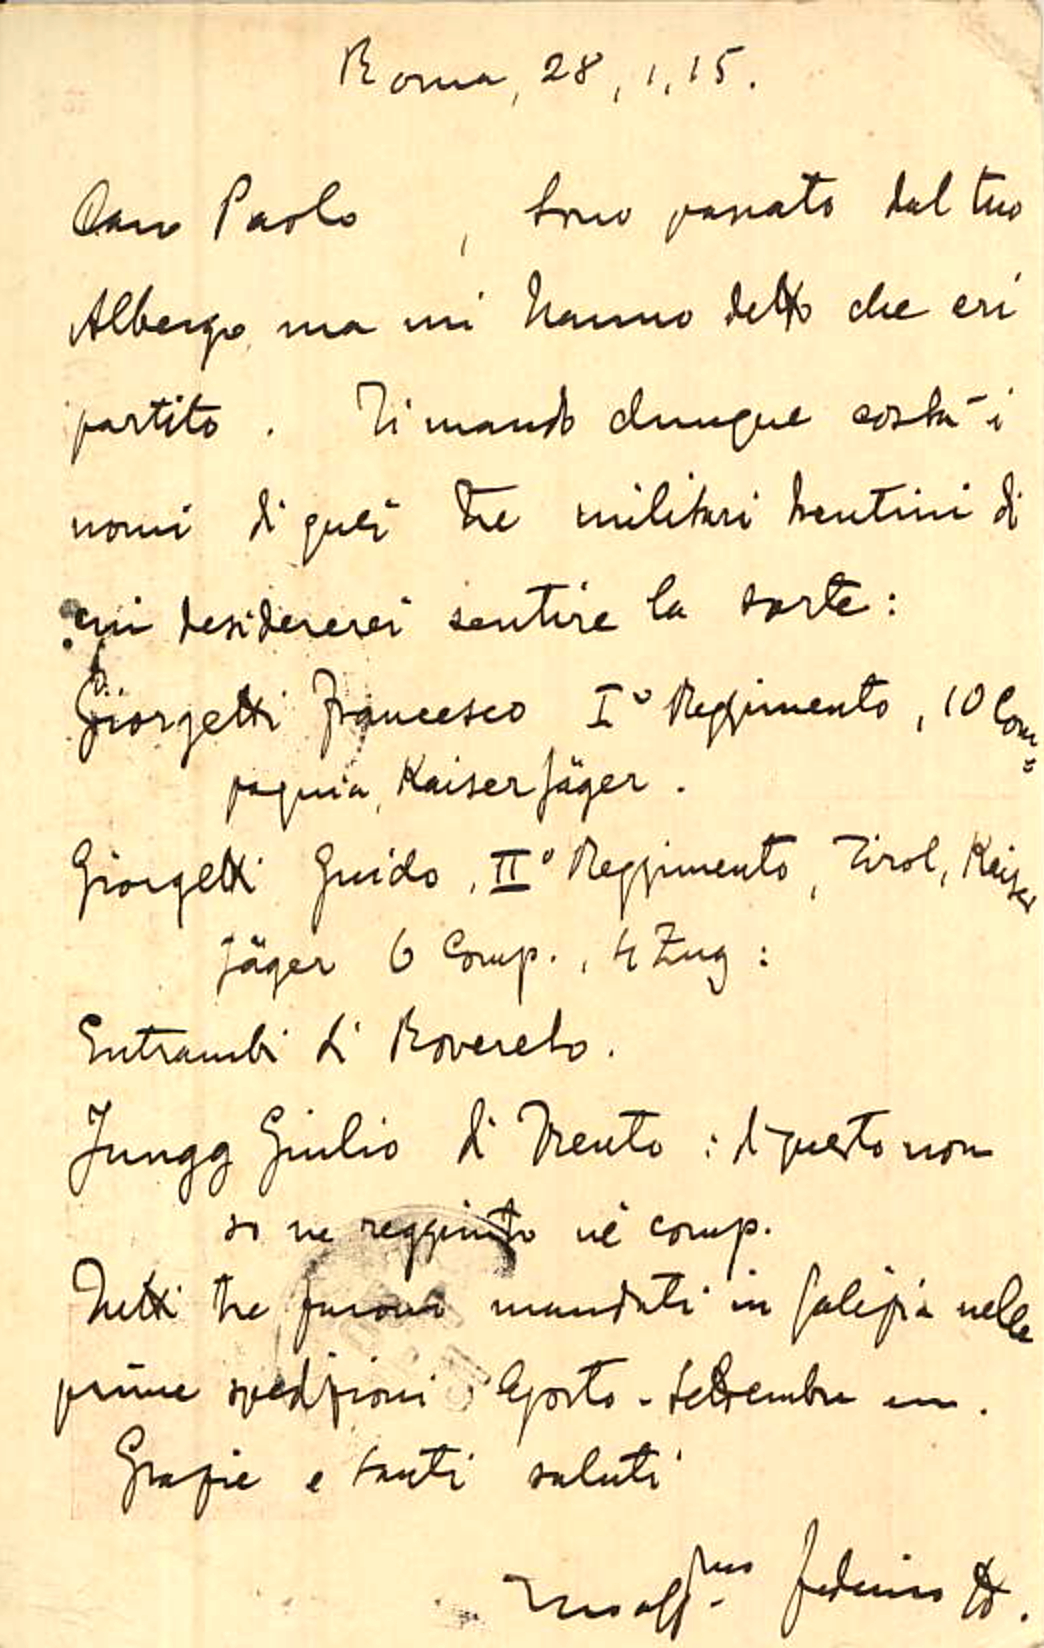 Roma, 28, 1, 15.
Caro Paolo, Sono passato dal tuo
Albergo, ma mi hanno detto che eri
partito. Ti mando dunque costà i
nomi di quei tre militari trentini di
cui desidererei sentire la sorte:
Giorgetti Francesco I° Reggimento, 10 Com=
pagnia, Kaiserjäger.
Giorgetti Guido, II° Reggimento, Tirol, Kaiser
jäger 6 Comp., 4 Zug:
Entrambi di Rovereto.
Jungg Giulio di Trento: di questo non
so ne reggim̅to nè comp.
Tutti tre furono mandati in Galizia nelle
prime spedizioni Agosto - Settembre
Grazie e tanti saluti
Tuo aff.mo Federico